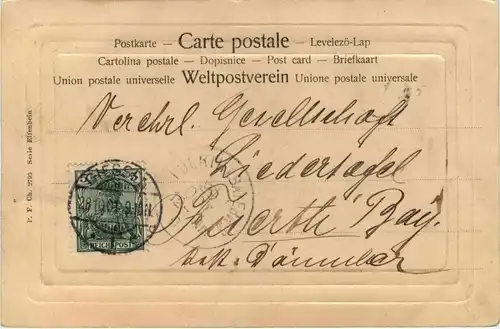 Postkarte – Carte postale – Levelező-Lap
Cartolina postale – Dopisnice – Post card – Briefkaart
Union postale universelle Weltpostverein Unione postale universale
Verehrl. Gesellschaft
Liedertafel
Fuerth Bay.
P. F. Ch. 2795 Serie Elfenbein
REICHSPOST